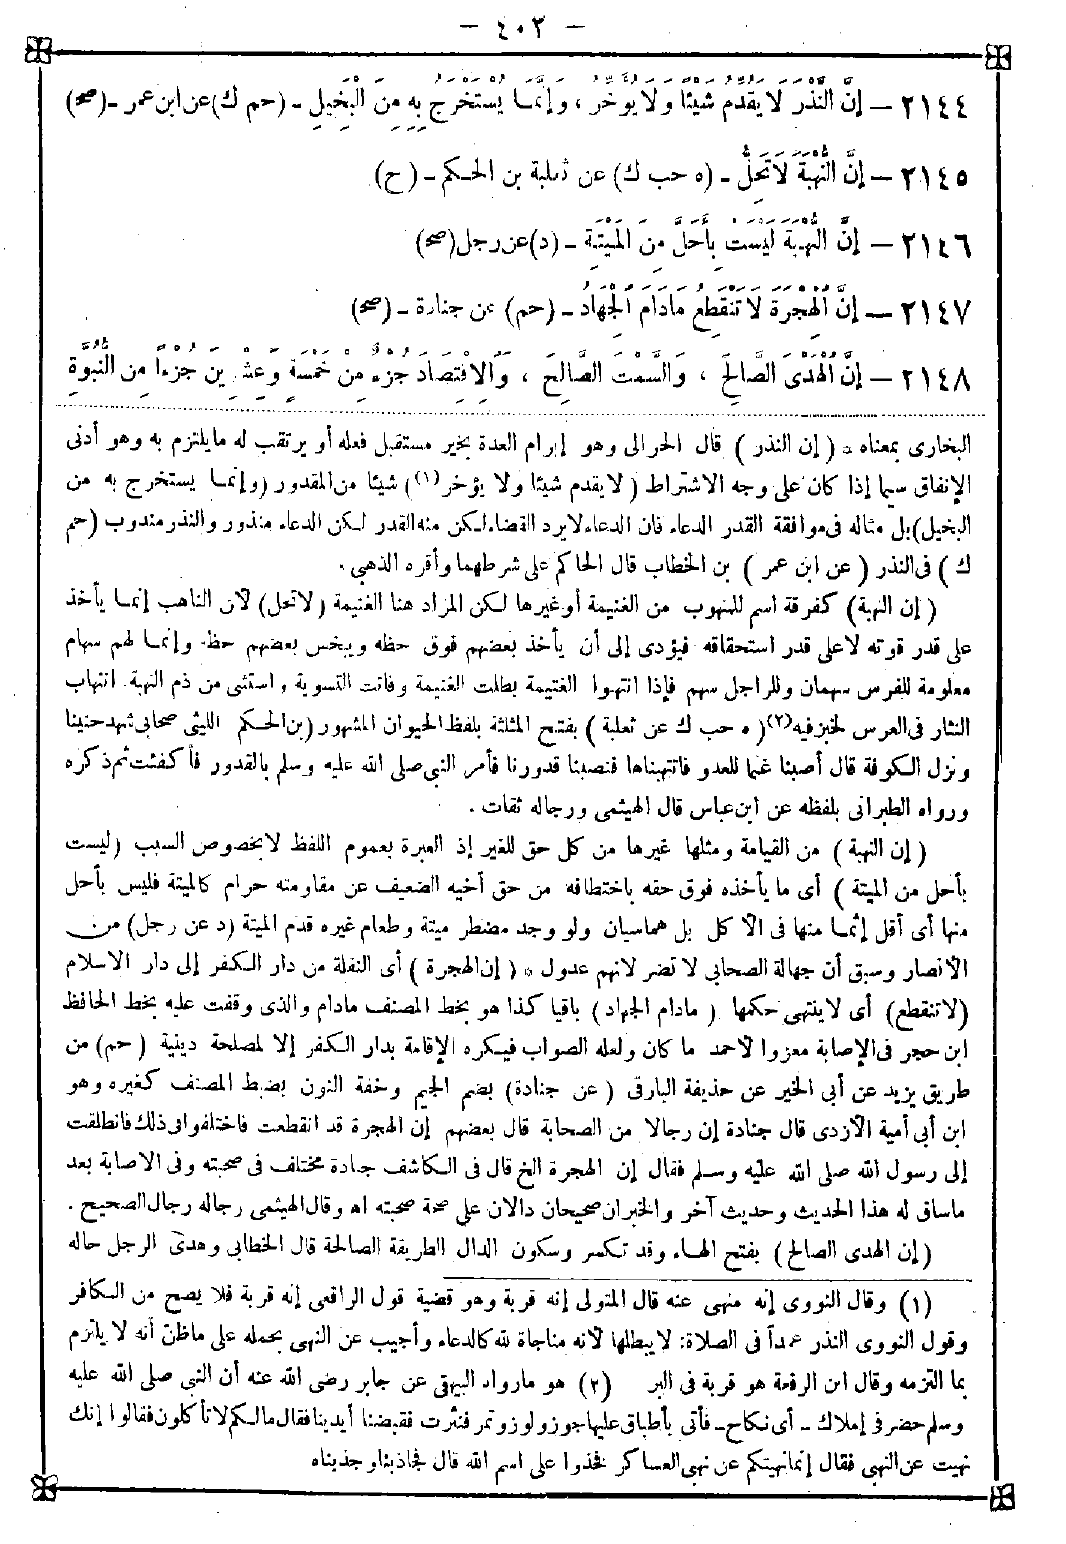 - ٤٠٣ -
٢١٤٤ – إِنَّ النَّذْرَ لَا يُقَدِّمُ شَيْئًا وَلَا يُؤَخِّرُ ، وَإِنَّمَا يُسْتَخْرَجُ بِهِ مِنَ الْبَخِيلِ – (حم ك) عن ابن عمر – (صح)
٢١٤٥ – إِنَّ النُّهْبَةَ لَا تَحِلُّ – (ه حب ك) عن ثعلبة بن الحكم – (ح)
٢١٤٦ – إِنَّ النُّهْبَةَ لَيْسَتْ بِأَحَلَّ مِنَ الْمَيْتَةِ – (د) عن رجل (صح)
٢١٤٧ – إِنَّ الْهِجْرَةَ لَا تَنْقَطِعُ مَادَامَ الْجِهَادُ – (حم) عن جنادة – (صح)
٢١٤٨ – إِنَّ الْهَدْىَ الصَّالِحَ ، وَالسَّمْتَ الصَّالِحَ ، وَالِاقْتِصَادَ جُزْءٌ مِنْ خَمْسَةٍ وَعِشْرِينَ جُزْءًا مِنَ النُّبُوَّةِ
البخارى بمعناه * ( إن النذر ) قال الحرالى وهو إبرام العدة بخير مستقبل فعله أو يرتقب له ما يلتزم به وهو أدنى
الإنفاق سيما إذا كان على وجه الاشتراط ( لا يقدم شيئا ولا يؤخر (١) ) شيئا من المقدور (وإنما يستخرج به من
البخيل) بل مثاله فى موافقة القدر الدعاء فان الدعاء لا يرد القضاء لكن منه القدر لكن الدعاء منذور والنذر مندوب (حم
ك ) فى النذر ( عن ابن عمر ) بن الخطاب قال الحاكم على شرطهما وأقره الذهبي .
( إن النهبة) كغرفة اسم للمنهوب من الغنيمة أو غيرها لكن المراد هنا الغنيمة (لا تحل) لأن الناهب إنما يأخذ
على قدر قوته لا على قدر استحقاقه فيؤدى إلى أن يأخذ بعضهم فوق حظه ويبخس بعضهم حظه وإنما لهم سهام
معلومة للفرس سهمان وللراجل سهم فإذا انتهبوا الغنيمة بطلت الغنيمة وفاتت التسوية واستثنى من ذم النهبة انتهاب
النثار فى العرس لخبر فيه (٢) ( ه حب ك عن ثعلبة ) بفتح المثلثة بلفظ الحيوان المشهور (بن الحكم الليثى صحابى شهد حنينا
ونزل الكوفة قال أصبنا غنما للعدو فانتهبناها فنصبنا قدورنا فأمر النبى صلى الله عليه وسلم بالقدور فأكفئت ثم ذكره
ورواه الطبرانى بلفظه عن ابن عباس قال الهيثمى ورجاله ثقات .
( إن النهبة ) من القيامة ومثلها غيرها من كل حق للغير إذ العبرة بعموم اللفظ لا بخصوص السبب (ليست
بأحل من الميتة ) أى ما يأخذه فوق حقه باختطافه من حق أخيه الضعيف عن مقاومته حرام كالميتة فليس بأحل
منها أى أقل إثما منها فى الأكل بل هما سيان ولو وجد مضطر ميتة وطعام غيره قدم الميتة (د عن رجل) من
الأنصار وسبق أن جهالة الصحابى لا تضر لأنهم عدول * ( إن الهجرة ) أى النقلة من دار الكفر إلى دار الاسلام
(لا تنقطع) أى لا ينتهى حكمها ( مادام الجهاد ) باقيا كذا هو بخط المصنف مادام والذى وقفت عليه بخط الحافظ
ابن حجر فى الإصابة معزوا لأحمد ما كان ولعله الصواب فيكره الإقامة بدار الكفر إلا لمصلحة دينية (حم) من
طريق يزيد عن أبى الخير عن حذيفة البارقى ( عن جنادة) بضم الجيم وخفة النون بضبط المصنف كغيره وهو
ابن أبى أمية الأزدى قال جنادة إن رجالا من الصحابة قال بعضهم إن الهجرة قد انقطعت فاختلفوا فى ذلك فانطلقت
إلى رسول الله صلى الله عليه وسلم فقال إن الهجرة الخ قال فى الكاشف جنادة مختلف فى صحبته وفى الاصابة بعد
ما ساق له هذا الحديث وحديث آخر والخبران صحيحان دالان على صحة صحبته اه وقال الهيثمى رجاله رجال الصحيح .
( إن الهدى الصالح ) بفتح الهاء وقد تكسر وسكون الدال الطريقة الصالحة قال الخطابى وهدى الرجل حاله
(١) وقال النووى إنه منهى عنه قال المتولى إنه قربة وهو قضية قول الرافعى إنه قربة فلا يصح من الكافر
وقول النووى النذر عمداً فى الصلاة : لا يبطلها لأنه مناجاة لله كالدعاء وأجيب عن النهى بحمله على ما ظن أنه لا يلتزم
بما التزمه وقال ابن الرفعة هو قربة فى البر (٢) هو ما رواه البيهقى عن جابر رضى الله عنه أن النبى صلى الله عليه
وسلم حضر فى إملاك – أى نكاح – فأتى بأطباق عليها جوز ولوز وتمر فنثرت فقبضنا أيدينا فقال مالكم لا تأكلون فقالوا إنك
نهيت عن النهبى فقال إنما نهيتكم عن نهبى العساكر فخذوا على اسم الله قال فجاذبنا وجذبناه